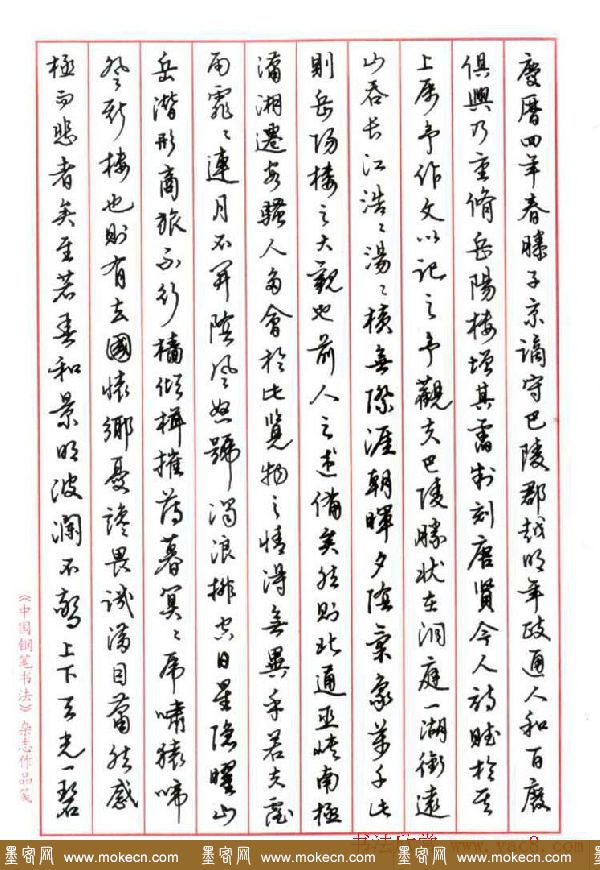 慶曆四年春滕子京謫守巴陵郡越明年政通人和百廢
俱興乃重脩岳陽樓增其舊制刻唐賢今人詩賦於其
上属予作文以記之予觀夫巴陵勝状在洞庭一湖銜遠
山吞长江浩〻湯〻横無際涯朝暉夕陰氣象萬千此
則岳陽樓之大觀也前人之述備矣然則北通巫峽南極
瀟湘遷客騷人多會於此覽物之情得無異乎若夫霪
雨霏〻連月不開陰風怒號濁浪排空日星隐曜山
岳潜形商旅不行檣傾楫摧薄暮冥〻虎嘯猿啼
登斯樓也則有去國懷鄉憂讒畏譏滿目蕭然感
極而悲者矣至若春和景明波瀾不驚上下天光一碧
《中国钢笔书法》杂志作品笺
书法欣赏 www.yac8.com
墨客网 www.mokecn.com 墨客网 www.mokecn.com 墨客网 www.mokecn.com